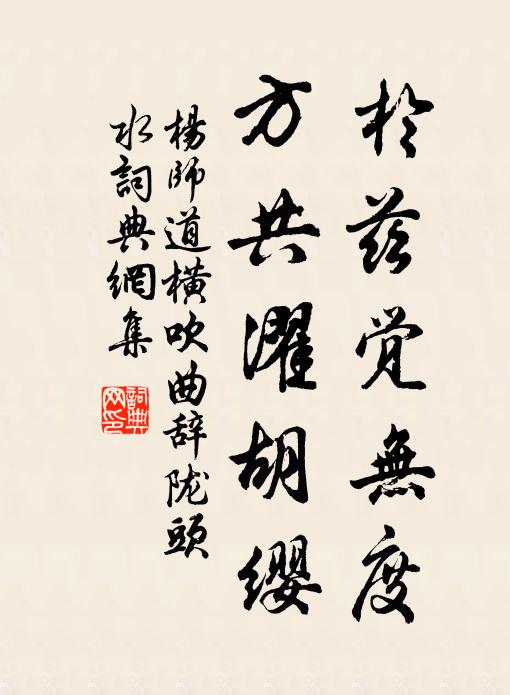 於兹覚無度
方共濯胡缨
楊師道橫吹曲辞陇頭
水詞典網集
詞典
网印